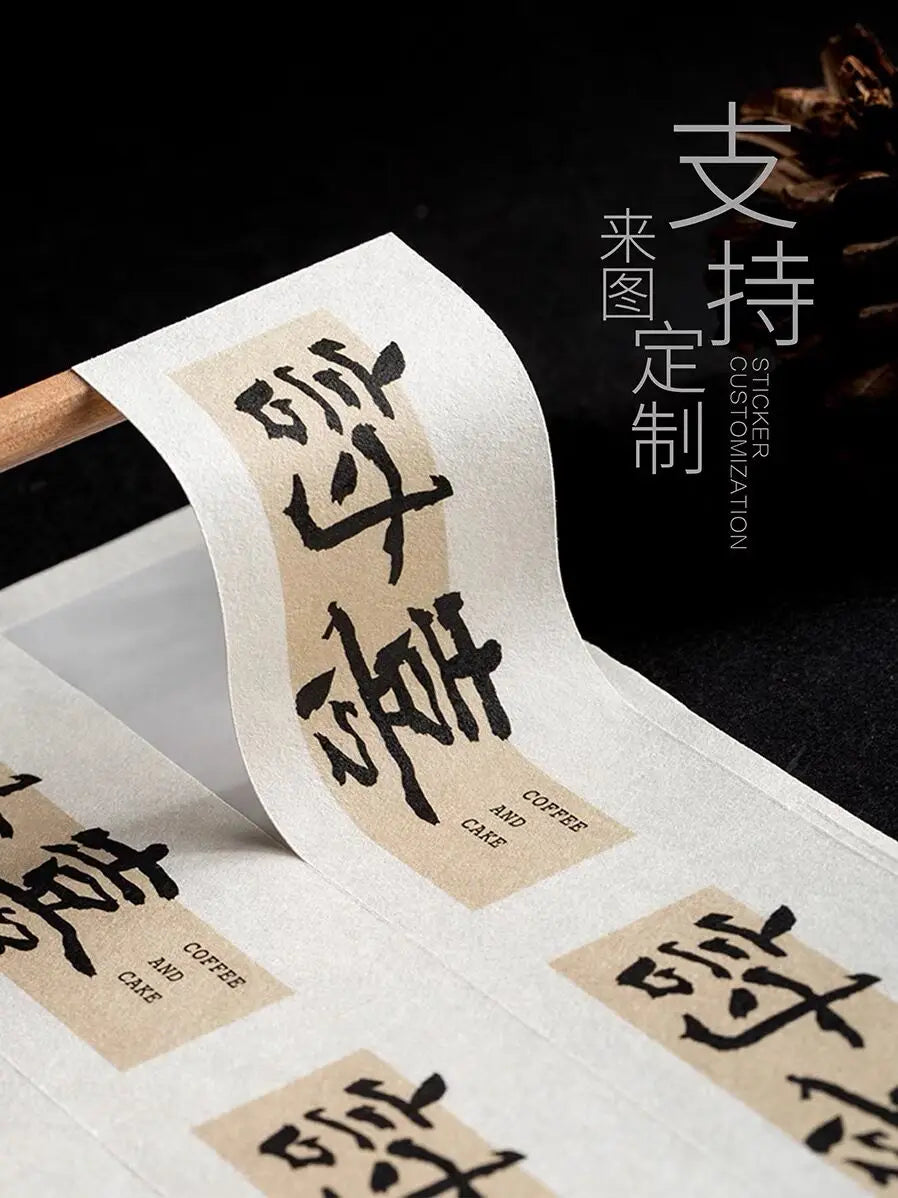 支持
来图
定制
STICKER
CUSTOMIZATION
討喜
COFFEE
AND
CAKE
喜
COFFEE
AND
CAKE
討
討